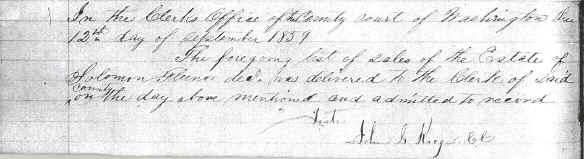 In the Clerks Office of the County court of Washington the
12th day of September 1859
The foregoing list of sales of the Estate of
Solomon decd was delivered to the Clerk of said
County
on the day above mentioned and admitted to record
Teste
John G. Kreger CC